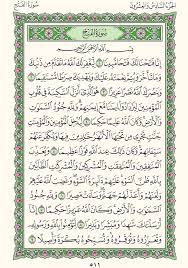 الجزء السادس والعشرون
سورة الفتح
سُورَةُ الْفَتْحِ
بِسْمِ اللَّهِ الرَّحْمَٰنِ الرَّحِيمِ
إِنَّا فَتَحْنَا لَكَ فَتْحًا مُّبِينًا ۝١ لِّيَغْفِرَ لَكَ اللَّهُ مَا تَقَدَّمَ مِن ذَنبِكَ
وَمَا تَأَخَّرَ وَيُتِمَّ نِعْمَتَهُ عَلَيْكَ وَيَهْدِيَكَ صِرَاطًا مُّسْتَقِيمًا ۝٢
وَيَنصُرَكَ اللَّهُ نَصْرًا عَزِيزًا ۝٣ هُوَ الَّذِي أَنزَلَ السَّكِينَةَ
فِي قُلُوبِ الْمُؤْمِنِينَ لِيَزْدَادُوا إِيمَٰنًا مَّعَ إِيمَٰنِهِمْ وَلِلَّهِ جُنُودُ السَّمَٰوَٰتِ
وَالْأَرْضِ وَكَانَ اللَّهُ عَلِيمًا حَكِيمًا ۝٤ لِّيُدْخِلَ الْمُؤْمِنِينَ وَالْمُؤْمِنَٰتِ
جَنَّٰتٍ تَجْرِي مِن تَحْتِهَا الْأَنْهَٰرُ خَٰلِدِينَ فِيهَا وَيُكَفِّرَ عَنْهُمْ
سَيِّـَٔاتِهِمْ وَكَانَ ذَٰلِكَ عِندَ اللَّهِ فَوْزًا عَظِيمًا ۝٥ وَيُعَذِّبَ
الْمُنَٰفِقِينَ وَالْمُنَٰفِقَٰتِ وَالْمُشْرِكِينَ وَالْمُشْرِكَٰتِ الظَّانِّينَ
بِاللَّهِ ظَنَّ السَّوْءِ عَلَيْهِمْ دَائِرَةُ السَّوْءِ وَغَضِبَ اللَّهُ عَلَيْهِمْ
وَلَعَنَهُمْ وَأَعَدَّ لَهُمْ جَهَنَّمَ وَسَاءَتْ مَصِيرًا ۝٦ وَلِلَّهِ جُنُودُ السَّمَٰوَٰتِ
وَالْأَرْضِ وَكَانَ اللَّهُ عَزِيزًا حَكِيمًا ۝٧ إِنَّا أَرْسَلْنَٰكَ شَٰهِدًا
وَمُبَشِّرًا وَنَذِيرًا ۝٨ لِّتُؤْمِنُوا بِاللَّهِ وَرَسُولِهِ
وَتُعَزِّرُوهُ وَتُوَقِّرُوهُ وَتُسَبِّحُوهُ بُكْرَةً وَأَصِيلًا ۝٩
٥١١